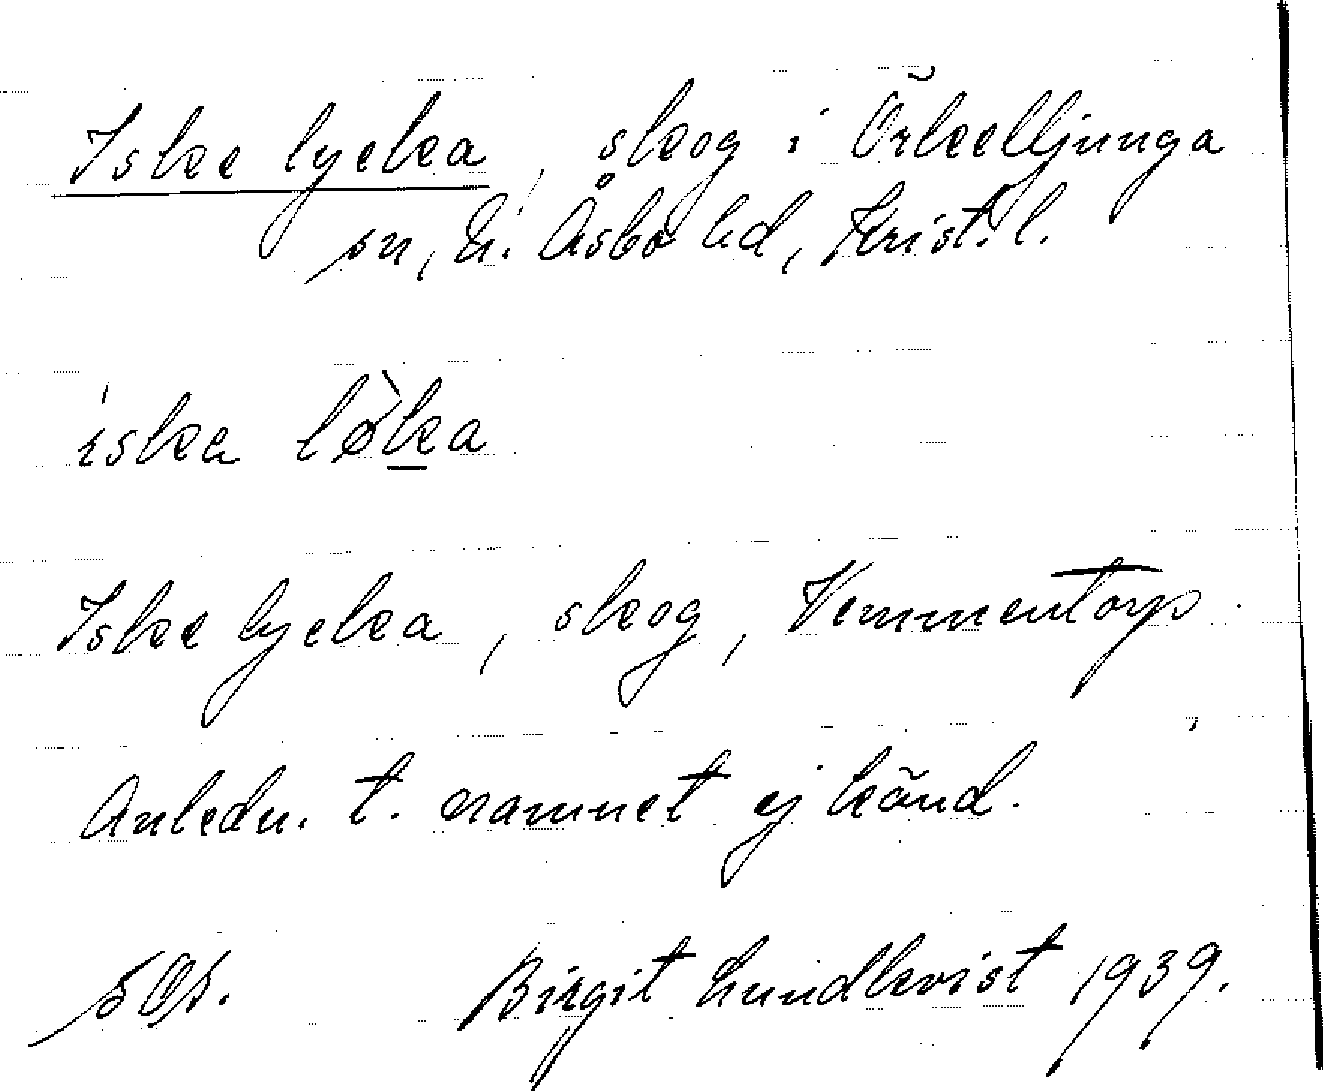 Iske lycka, skog i Örkelljunga
sn, N. Åsbo hd, Krist. l.
iska lø̀ka
Iske lycka, skog, Vemmentorp.
Anledn. t. namnet ej känd.
Birgit Lundkvist 1939.